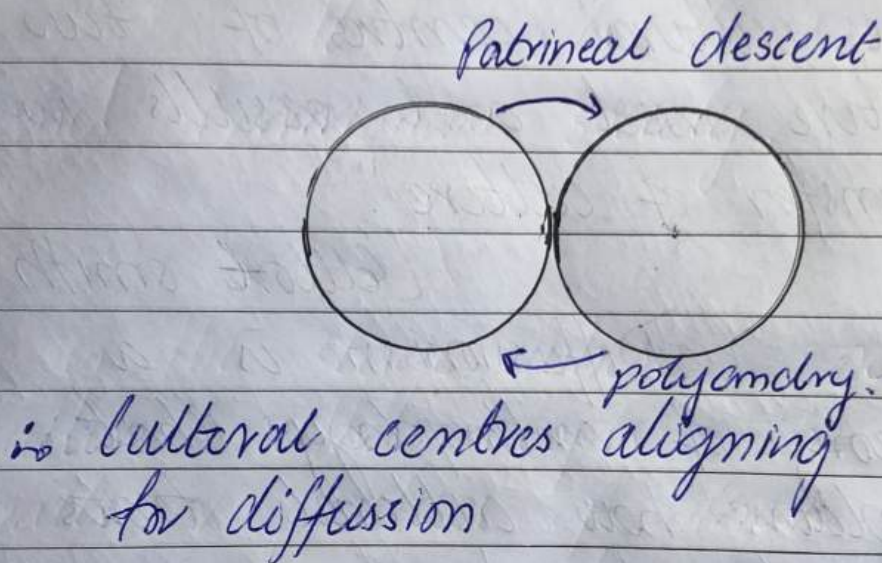 Patrineal descent
polyamdry.
∴ Cultoral centres aligning
for diffussion